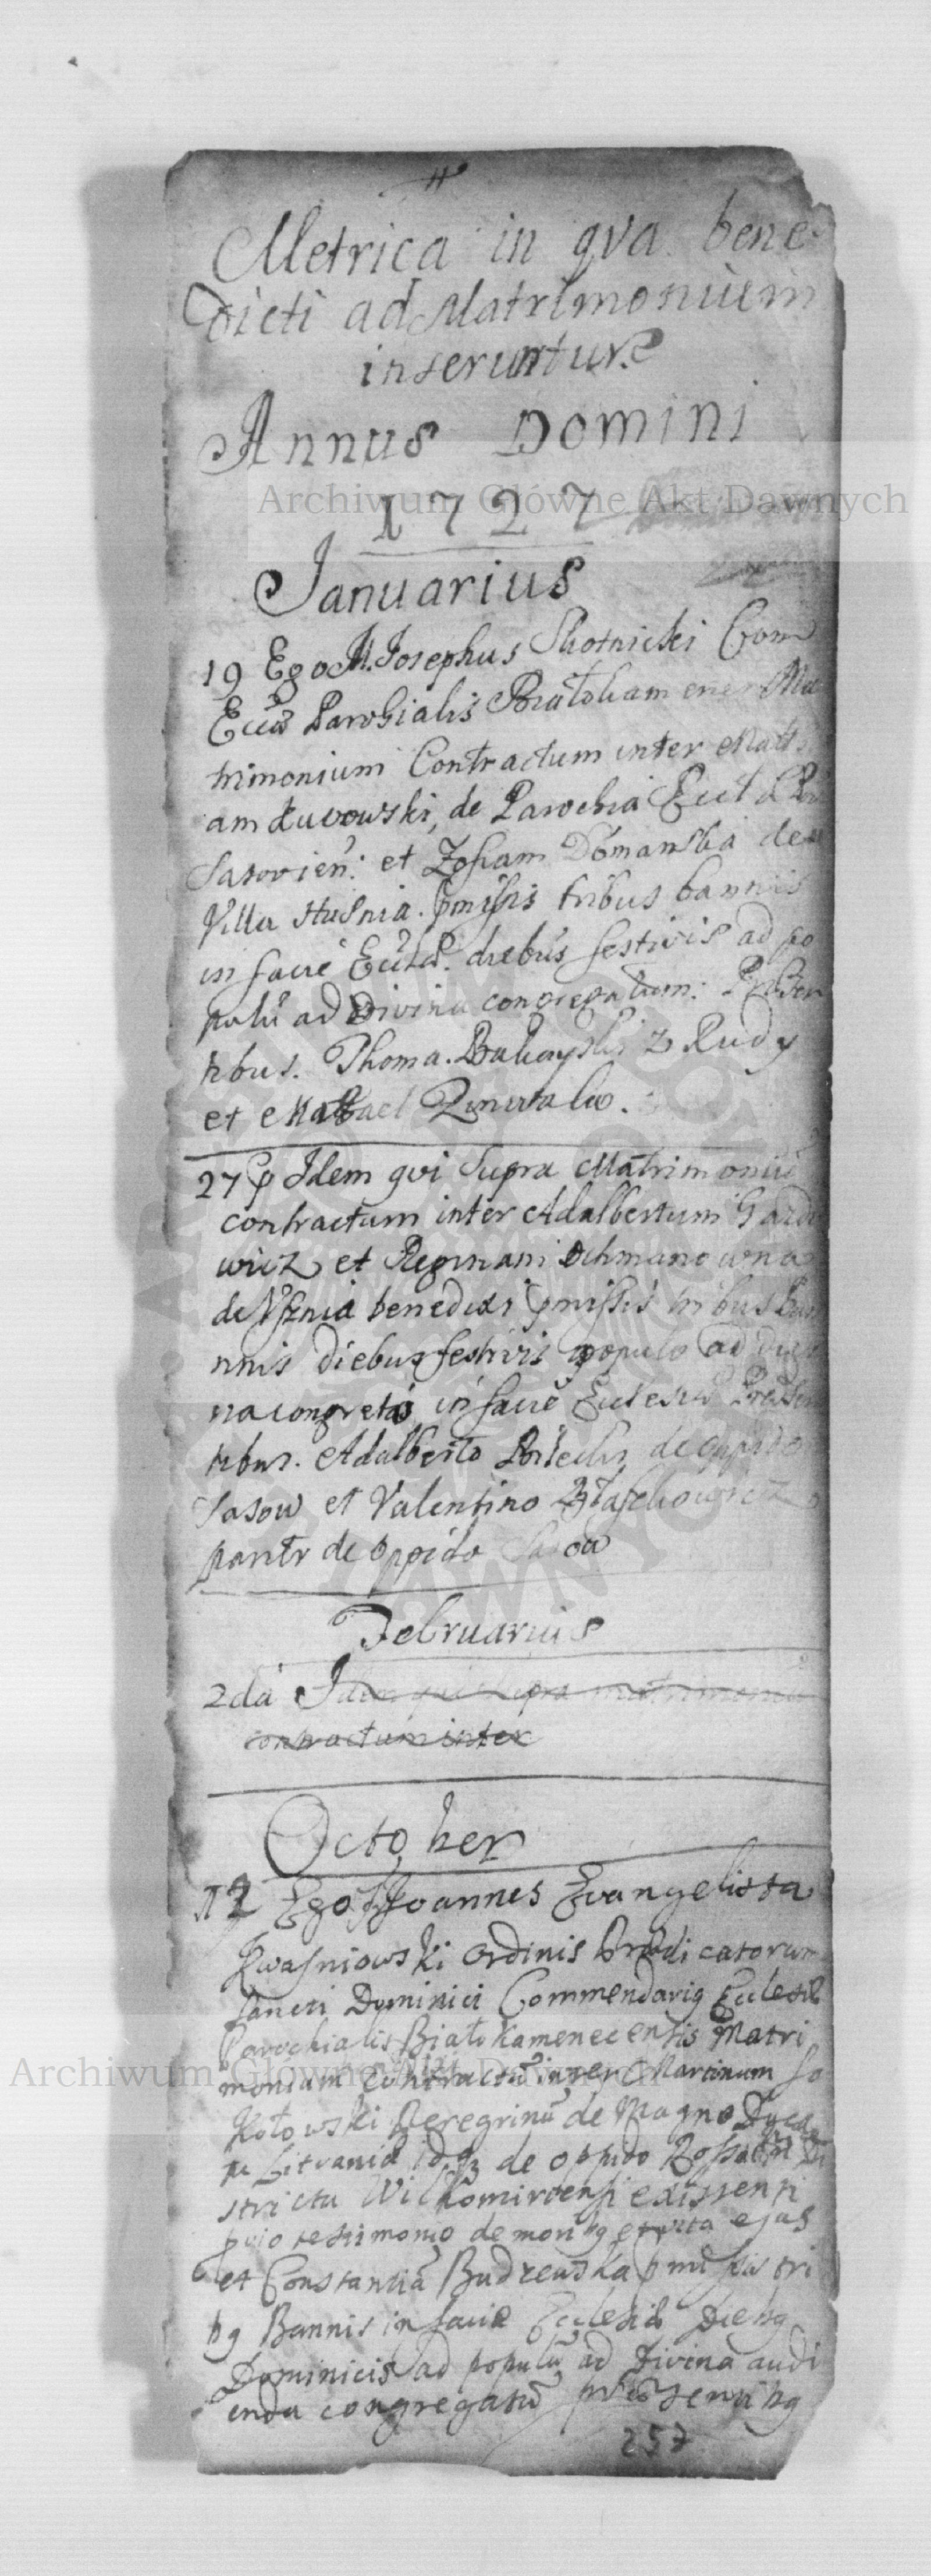 Metrica in qva bene
dicti ad Matrimonium
inseruntur
Annus Domini
1727
Archiwum Główne Akt Dawnych
Januarius
19 Ego M. Josephus Skotnicki Com
Eccłæ Parochialis Białokamenen Ma
trimonium Contractum inter Matth
am de Parochia
Sasovien: et Zofiam Domanska de
Villa Husnia. pmissis tribus bannis
in facie Eccłæ. diebus festivis ad po
pulū ad Divina congregatum: Præsen
tibus. Thoma. z Rudy
et
27 Idem qvi Supra Matrimoniū
contractum inter Adalbertum Gazde
wicz et Reginam Ochmanowna
de Vsznia benedixi pmissis tribus ban
nnis diebus festivis populo ad divi
na congretato in facie Ecclesiæ Præsen
tibus. Adalberto de oppido
Sasow et Valentino
paritr de oppido Sasow
Februarius
2da Idem qui supra matrimoniū
contractum inter
October
12 Ego F Joannes Evangelista
Kwasniowski Ordinis Prædicatorum
Sancti Dominici Commendariq Ecclesiæ
Parochialis Białokamenecensis Matri
monium contractū inter Martinum So
Archiwum Główne Akt Dawnych
kołowski Peregrinū de Magno Ducа
tu Litvaniæ de oppido Di
strictu Wilkomiriensi existenti
testimonio de moribq et vita ejus
et Constantiā Budzewska pmissis tri
bq Bannis in facie Ecclesiæ Diebq
Dominicis ad populū ad Divina audi
enda congregatū præsentibq
257